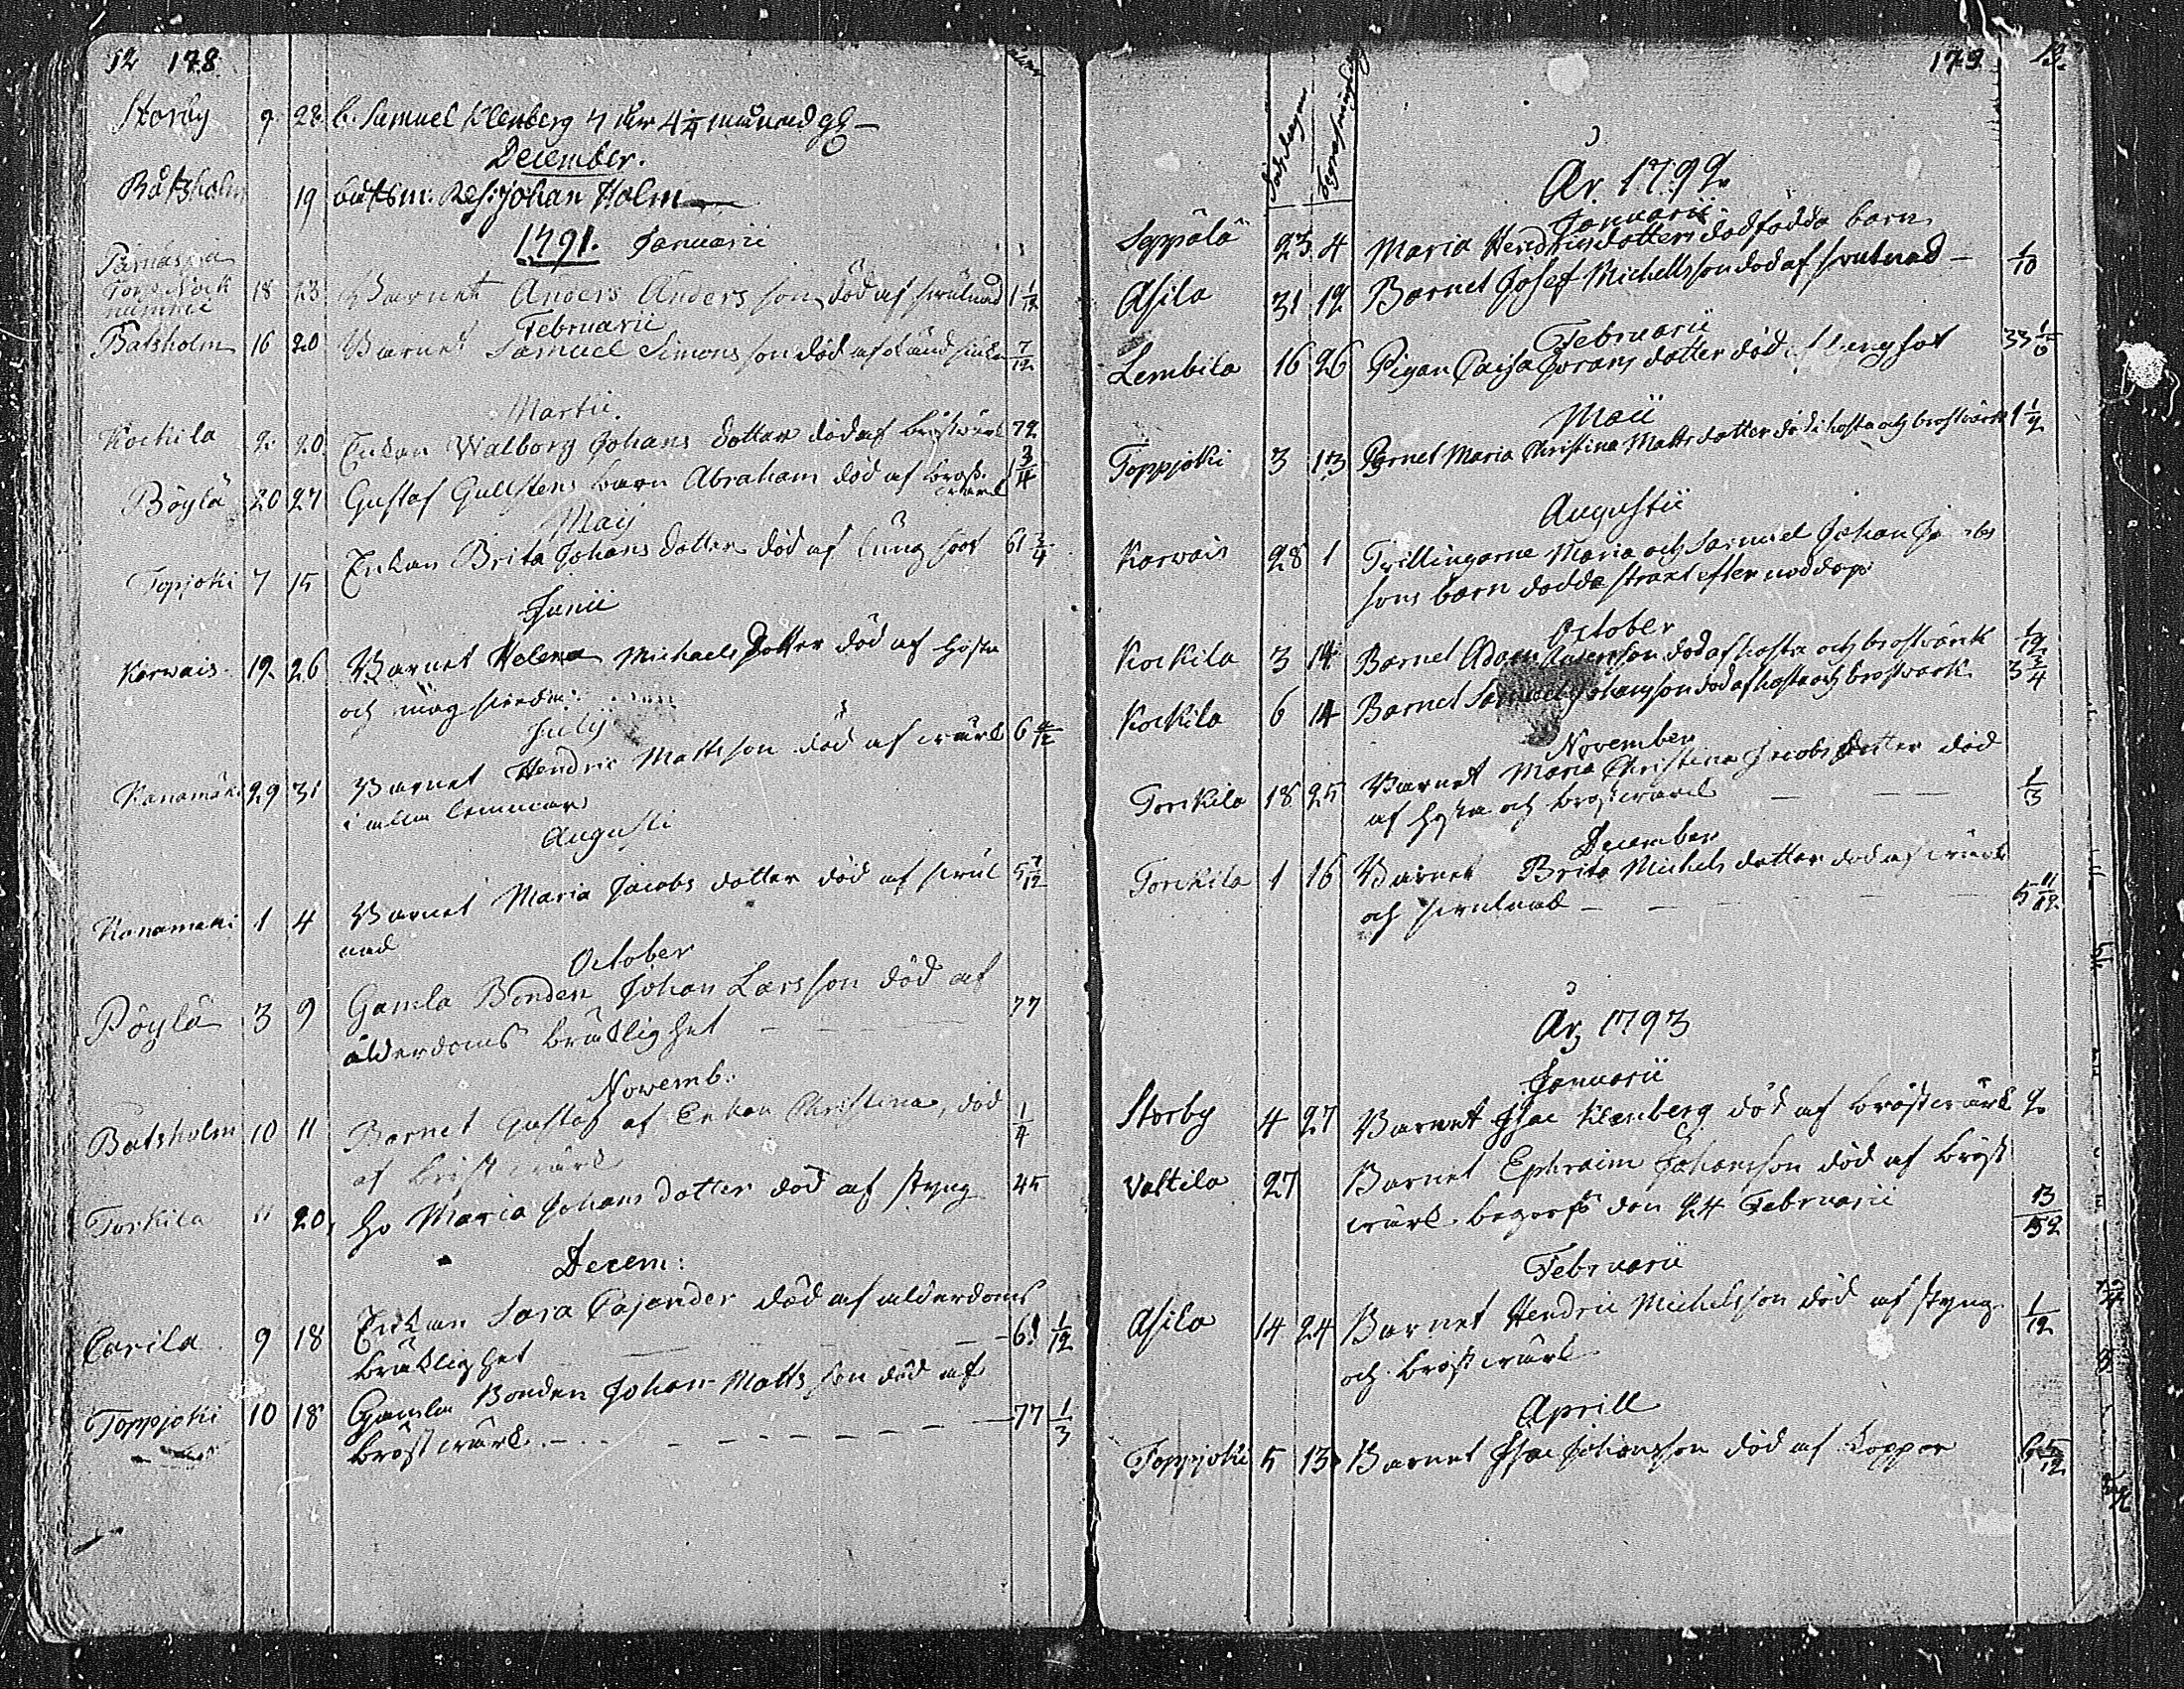 52 178.
Storby 9 28. b. Samuel Klenberg 7 år 4 1/4 månad gl
December.
Båtsholm 19 båtsm: Res: Johan Holm
1791. Januarii
18 23 Barnet Anders Andersson död af 1 1/12
Februarii
Batsholm 16 20 Barnet Samuel Simonsson död af 7/12
Martii.
Kockila 2. 20. Enkan Walborg Johans dotter död af bröstvärk 72
Böylä 20 27 Gustaf Gullstens barn Abraham död af bröst 1 3/4
värk
Maij
Topjoki 7 15 Enkan Brita Johans dotter död af lungsot 61 3/4
Junii
Karwais 19. 26 Barnet Helena Michaels Dotter död af hosta
och
Julij
Kanamäki 29 31 Barnet Hendric Mattsson död af wärk 6
i alla lemmar
Augusti
Kanamäki 1 4 Barnet Maria Jacobs dotter död af 5 7/12
October
Pöylä 3 9 Gamla Bonden Johan Larsson död af 77
ålderdoms bräklighet
Novemb.
Batsholm 10 11 Barnet Gustaf af Enkan Christina, död 1/4
af bröst wärk
Torkila 11 20, Ho Maria Johans dotter död af styng 45
Decem:
Carila 9 18 Enkan Sara Cajander död af alderdoms
bräklighet 61 1/12
Toppjoki 10 18 Gamla Bonden Johan Matts son död af
bröst wärk 77 1/3
179. 13.
Dödsdagen
År 1792
Januarii
Seppälä 23 4 Maria Hendricsdotters dödfödda barn
Asila 31 12 Barnet Josef Michellsson död af 1/10
Februarii
Lembila 16 26 Pigan Caisa Görans dotter död af lungsot 33 1/6
Maii
Toppjoki 3 13 Barnet Maria Christina Matts dotter död i hosta och bröstvärk 1 1/2
Augustii
Karwais 28 1 Tvillingarne Maria och Samuel Johan
sons barn dödde straxt efter nöddop
October
Kockila 3 14 Barnet Adam Andersson död af hosta och bröstvärk 1/12
Kockila 6 14 Barnet Samuel Johansson död af hosta och bröstvärk 3 3/4
November
Torckila 18 25 Barnet Maria Christina Jacobs dotter död
af hosta och bröstwärk 1/3
December
Torckila 1 16 Barnet Brita Michels dotter död af wärk
och 5 11/12
År 1793
Januarii
Storby 4 27 Barnet Isac Klenberg död af bröstwärk 2
Valtila 27 Barnet Ephraim Johansson död af bröst
wärk. begrofs den 24 Februarii 13/52
Februarii
Asila 14 24 Barnet Hendric Michelsson död af styng 1/12
och bröst wärk
Aprill
Toppjoki 5 13 Barnet Isac Johansson död af koppor 6 5/12